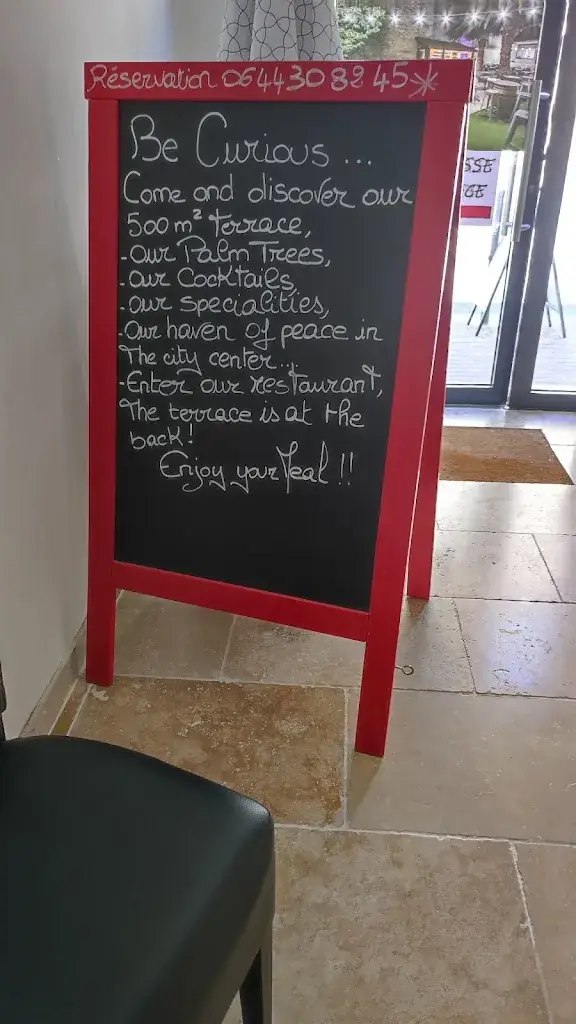 Réservation 06 44 30 82 45*
Be Curious...
Come and discover our
500 m² terrace,
- Our Palm Trees,
- Our Cocktails,
- Our specialities,
- Our haven of peace in
The city center...
- Enter our restaurant,
The terrace is at the
back!
Enjoy your Meal !!